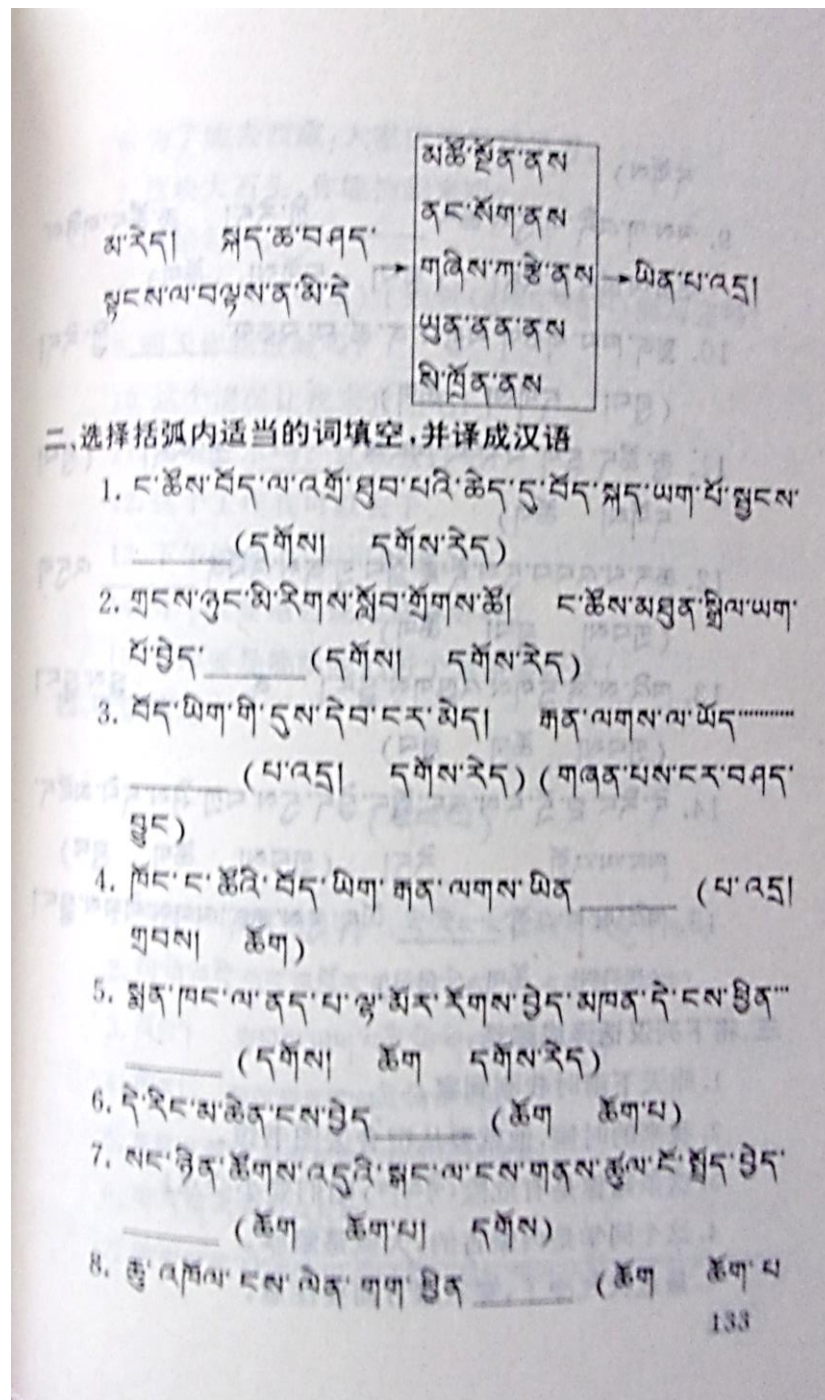 མཚོ་སྔོན་ནས
ནང་སོག་ནས
མ་རེད། སྐད་ཆ་བཤད་
→ གཞིས་ཀ་རྩེ་ནས → ཡིན་པ་འདྲ།
སྟངས་ལ་བལྟས་ན་མི་དེ
ཡུན་ནན་ནས
སི་ཁྲོན་ནས
二、选择括弧内适当的词填空,并译成汉语
1. ང་ཚོས་བོད་ལ་འགྲོ་ཐུབ་པའི་ཆེད་དུ་བོད་སྐད་ཡག་པོ་སྦྱངས་
______(དགོས། དགོས་རེད)
2. གྲངས་ཉུང་མི་རིགས་སློབ་གྲོགས་ཚོ། ང་ཚོས་མཐུན་སྒྲིལ་ཡག་
པོ་བྱེད་______(དགོས། དགོས་རེད)
3. བོད་ཡིག་གི་དུས་དེབ་ངར་མེད། རྒན་ལགས་ལ་ཡོད…………
______ (པ་འདྲ། དགོས་རེད) (གཞན་པས་ངར་བཤད་
བྱུང)
4. ཁོང་ང་ཚོའི་བོད་ཡིག་རྒན་ལགས་ཡིན______ (པ་འདྲ།
གྲབས། ཆོག)
5. སྨན་ཁང་ལ་ནད་པ་ལྟ་མོར་རོགས་བྱེད་མཁན་དེ་ངས་བྱིན…
______ (དགོས། ཆོག དགོས་རེད)
6. དེ་རིང་མ་ཆེན་ངས་བྱེད______ (ཆོག ཆོག་པ)
7. སང་ཉིན་ཚོགས་འདུའི་སྒང་ལ་ངས་གནས་ཚུལ་ངོ་སྤྲོད་བྱེད་
______ (ཆོག ཆོག་པ། དགོས)
8. ཆུ་འཁོལ་ངས་ལེན་གག་བྱིན______ (ཆོག ཆོག་པ
133